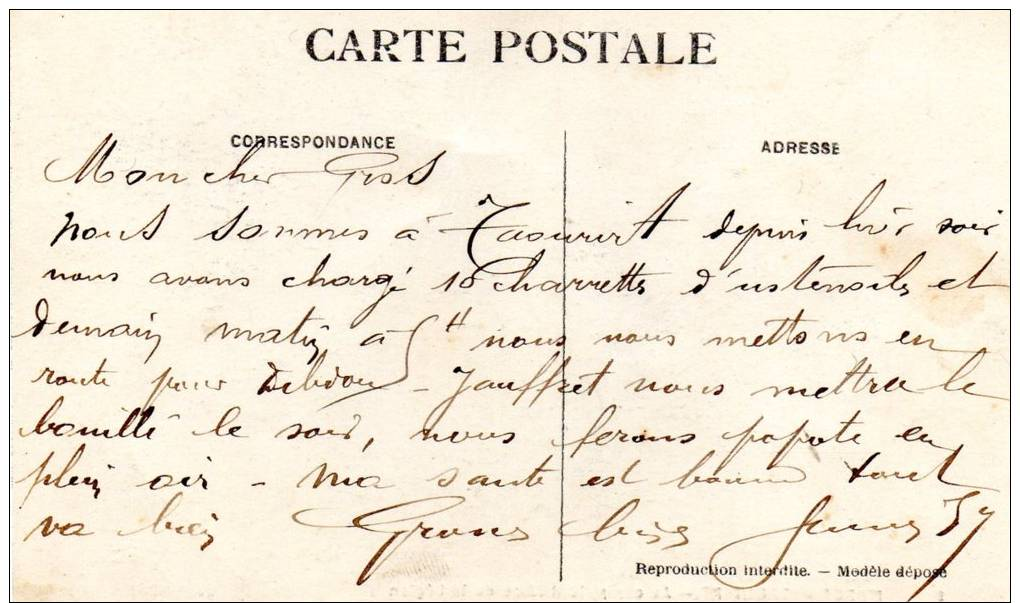 CARTE POSTALE
CORRESPONDANCE
ADRESSE
Mon cher Gros
nous sommes à Taourirt depuis hier soir
nous avons chargé 10 charrettes d'ustensiles et
demain matin à 5 H nous nous mettons en
route pour Debdou - Jauffret nous mettra la
bouille le soir, nous ferons popote en
plein air - Ma santé est bonne tout
va bien Gross bises
Reproduction interdite. — Modèle déposé